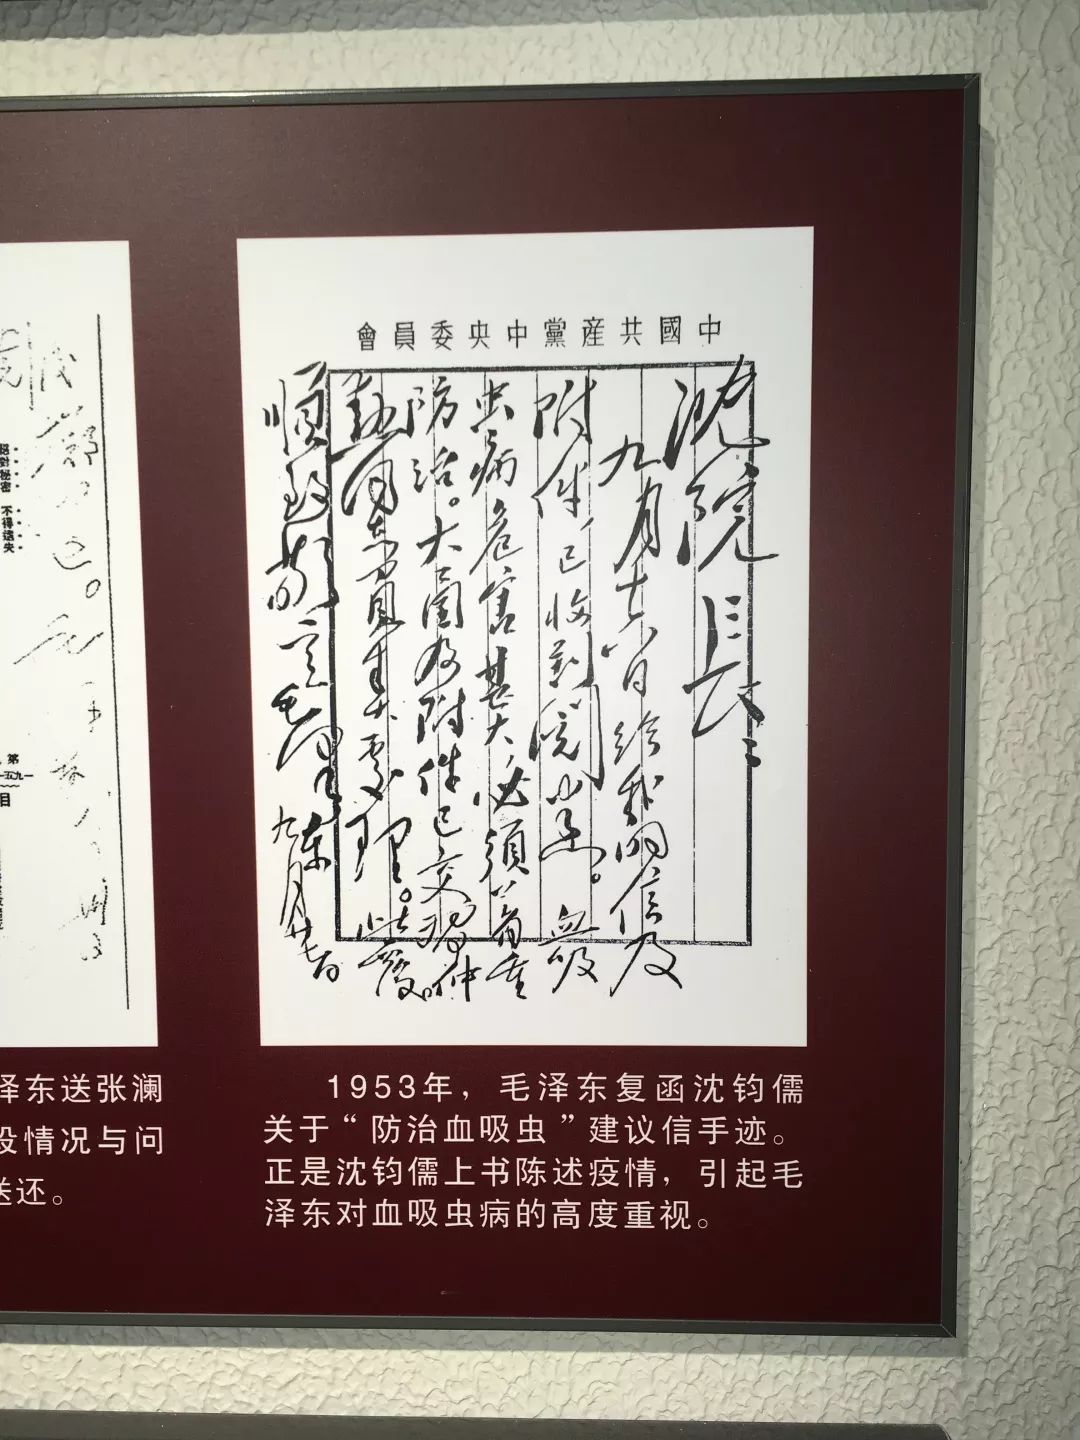 絕對秘密 不得遺失
第
日
中國共產黨中央委員會
沈院長：
九月十六日給我的信及
附件，已收到閱悉。血吸
虫病危害甚大，必須着重
防治。大函及附件已交習仲
勳同志負責處理。此覆
順致敬意 毛澤東
九月廿七日
泽东送张澜
情况与问
送还。
1953年，毛泽东复函沈钧儒
关于“防治血吸虫”建议信手迹。
正是沈钧儒上书陈述疫情，引起毛
泽东对血吸虫病的高度重视。